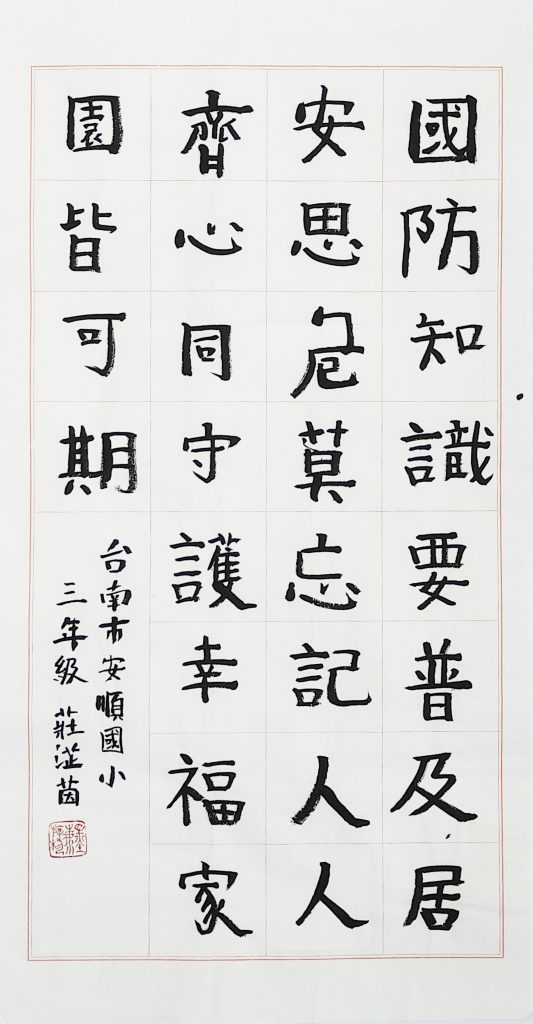 國防知識要普及居
安思危莫忘記人人
齊心同守護幸福家
園皆可期
台南市安順國小
三年級 莊茝茵